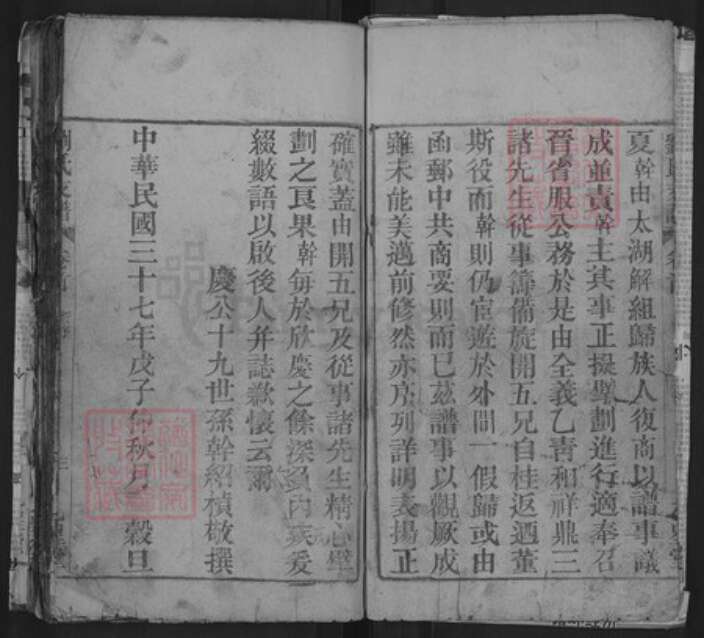 夏幹由太湖解組歸族人復商以譜事議
成並責幹主其事正擬擘劃進行適奉召
晉省服公務於是由全義乙青和祥鼎三
諸先生從事籌備旋開五兄自桂返迺董
斯役而幹則仍宦遊於外間一假歸或由
函郵中共商要則而已茲譜事以觀厥成
雖未能美邁前修然亦序列詳明表揚正
確實蓋由開五兄及從事諸先生精心壁
劃之良果幹每於欣慶之餘深負內疚爰
綴數語以啟後人并誌歉懷云爾
慶公十九世孫幹紹楨敬撰
中華民國三十七年戊子仲秋月 穀旦
劉氏支譜